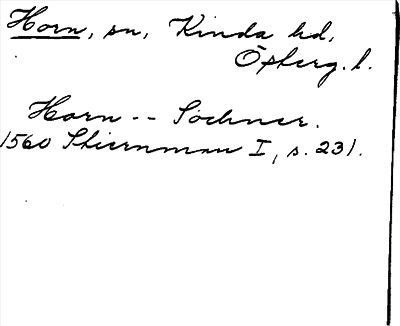 Horn, sn, Kinda hd,
Östberg. l.
Horn -- Sochner.
1560 Stiernman I, s. 231.